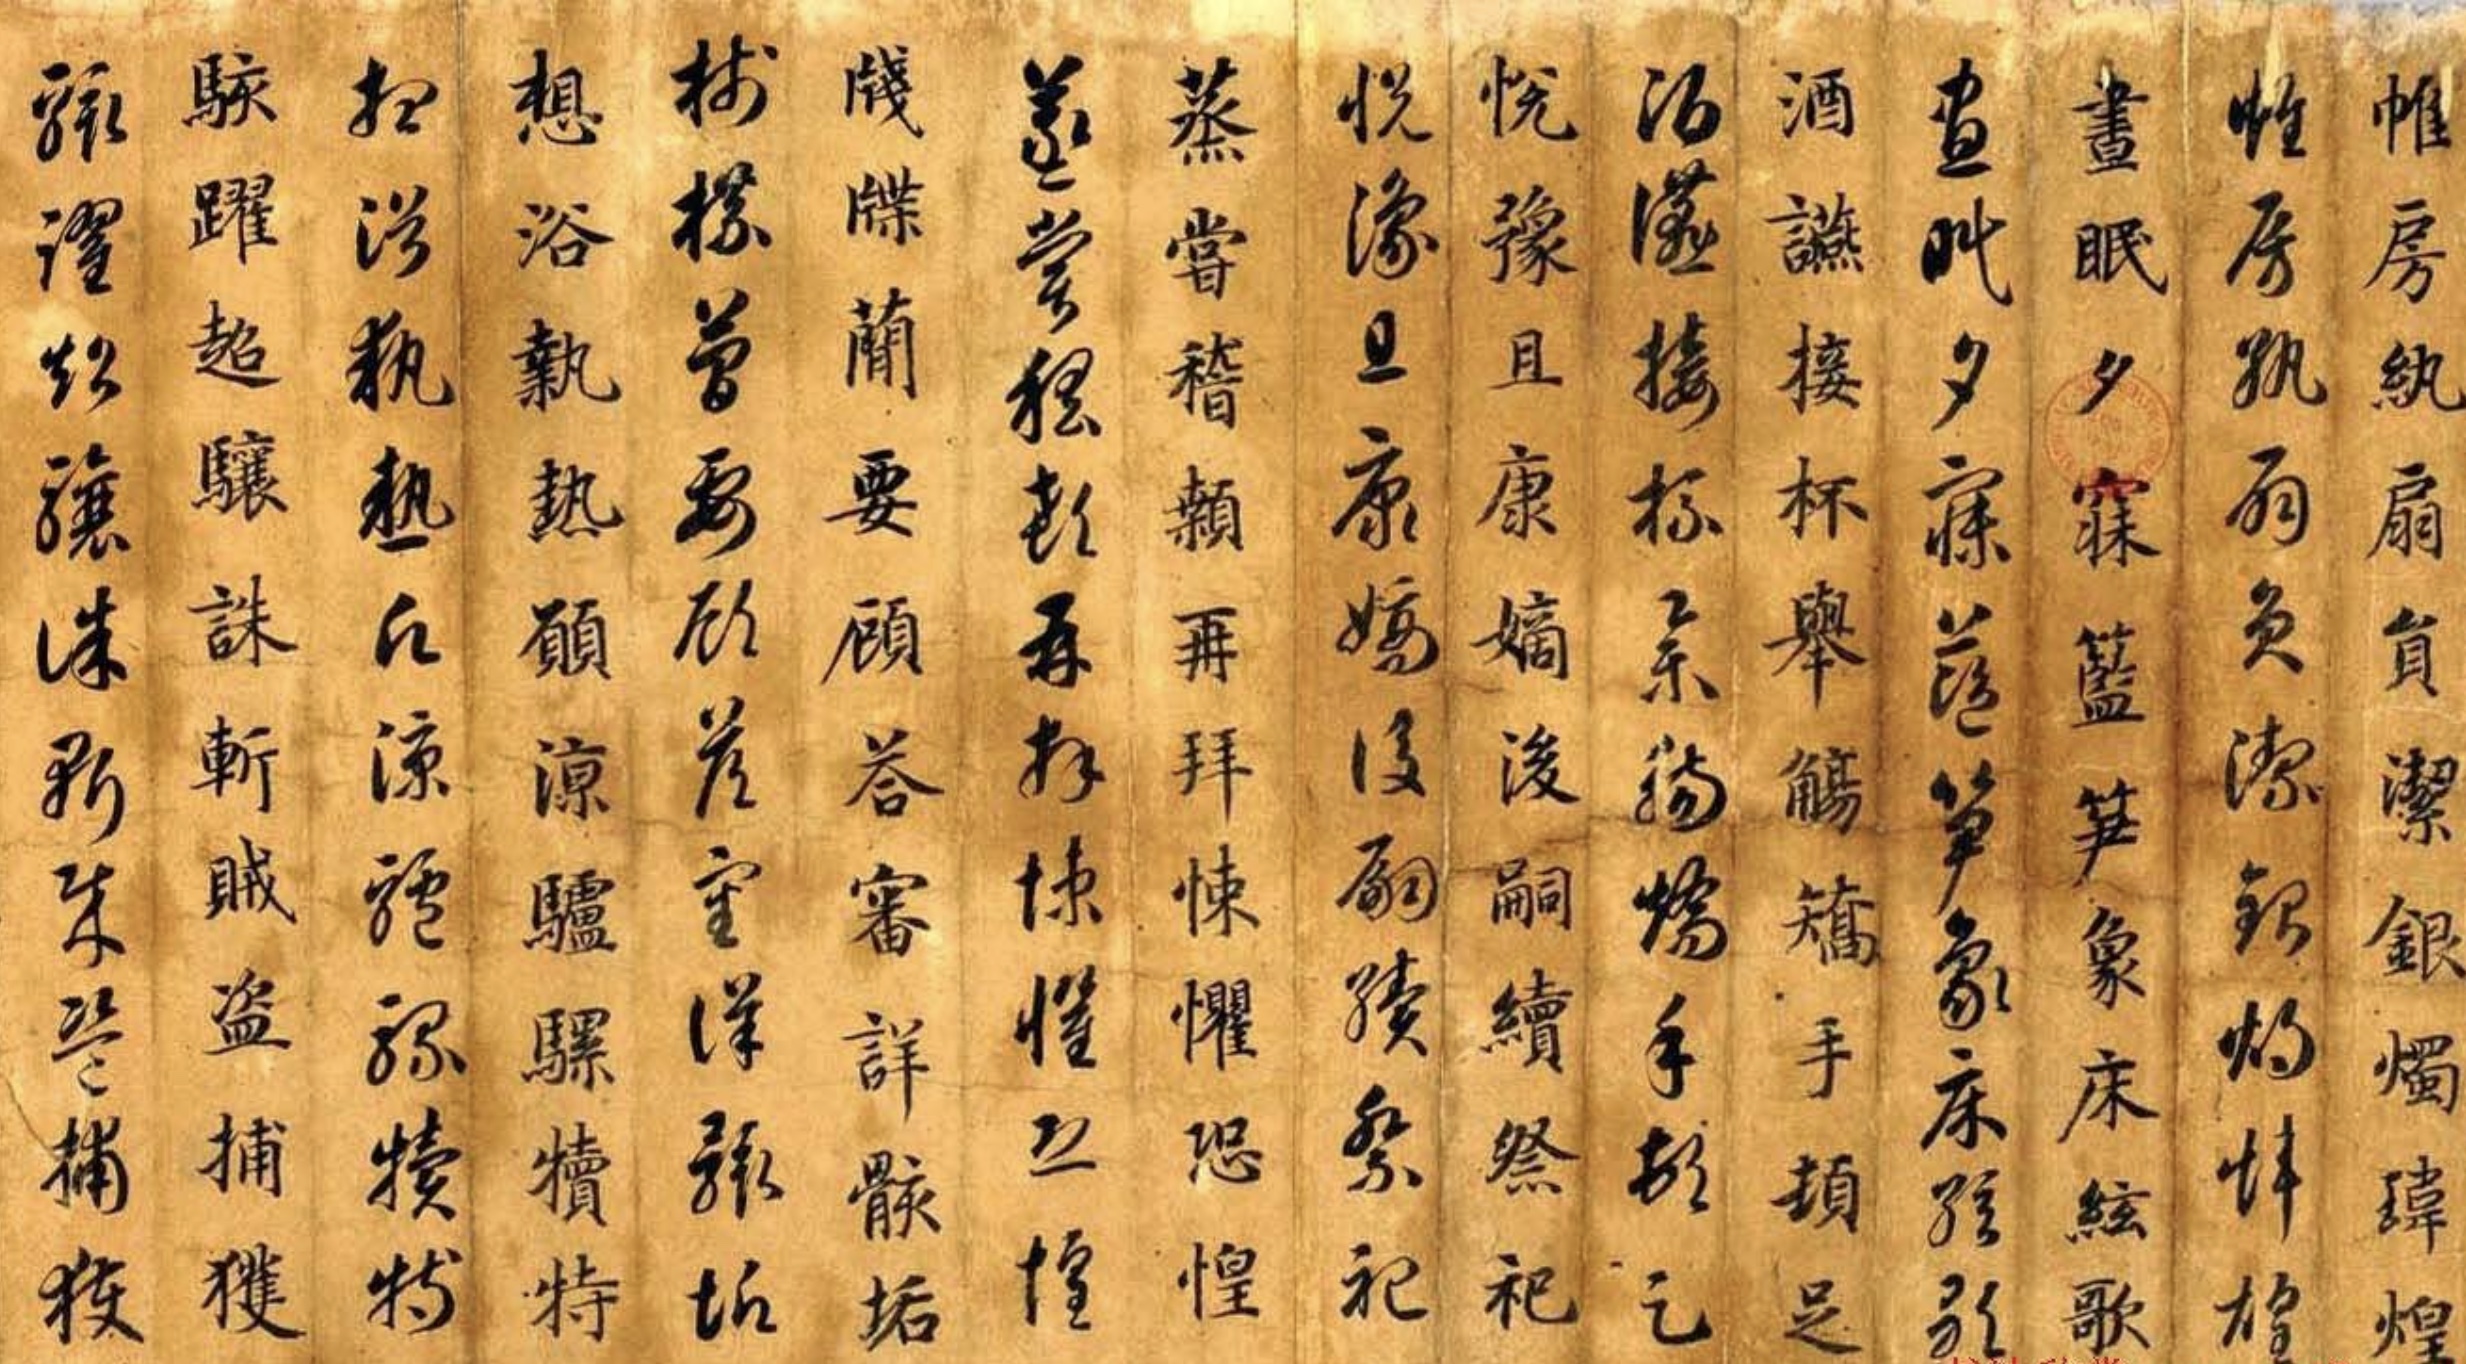 帷房紈扇員潔銀燭瑋煌
帷房紈扇員潔銀燭煒煌
晝眠夕寐籃笋象床絃歌
晝眠夕寐藍笋象床絃歌
酒讌接杯舉觴矯手頓足
酒讌接杯舉觴矯手頓足
悅豫且康嫡後嗣續祭祀
悅豫且康嫡後嗣續祭祀
蒸嘗稽顙再拜悚懼恐惶
蒸嘗稽顙再拜悚懼恐惶
牋牒蕑要顧荅審詳骸垢
牋牒蕑要顧荅審詳骸垢
想浴執熱願涼驢騾犢特
想浴執熱願涼驢騾犢特
駭躍超驤誅斬賊盜捕獲
駭躍超驤誅斬賊盜捕獲